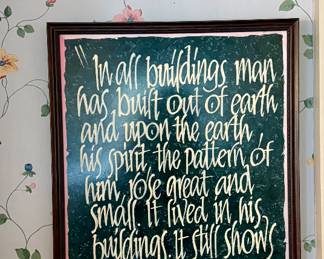 "In all buildings man
has built out of earth
and upon the earth,
his spirit the pattern of
him, rose great and
small. It lived in his
buildings. It still shows